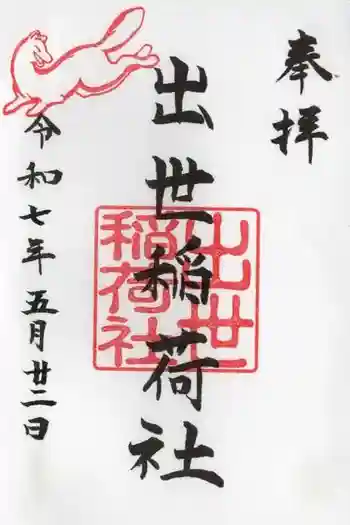 奉拝
出世稲荷社
出世
稲荷社
令和七年五月廿二日